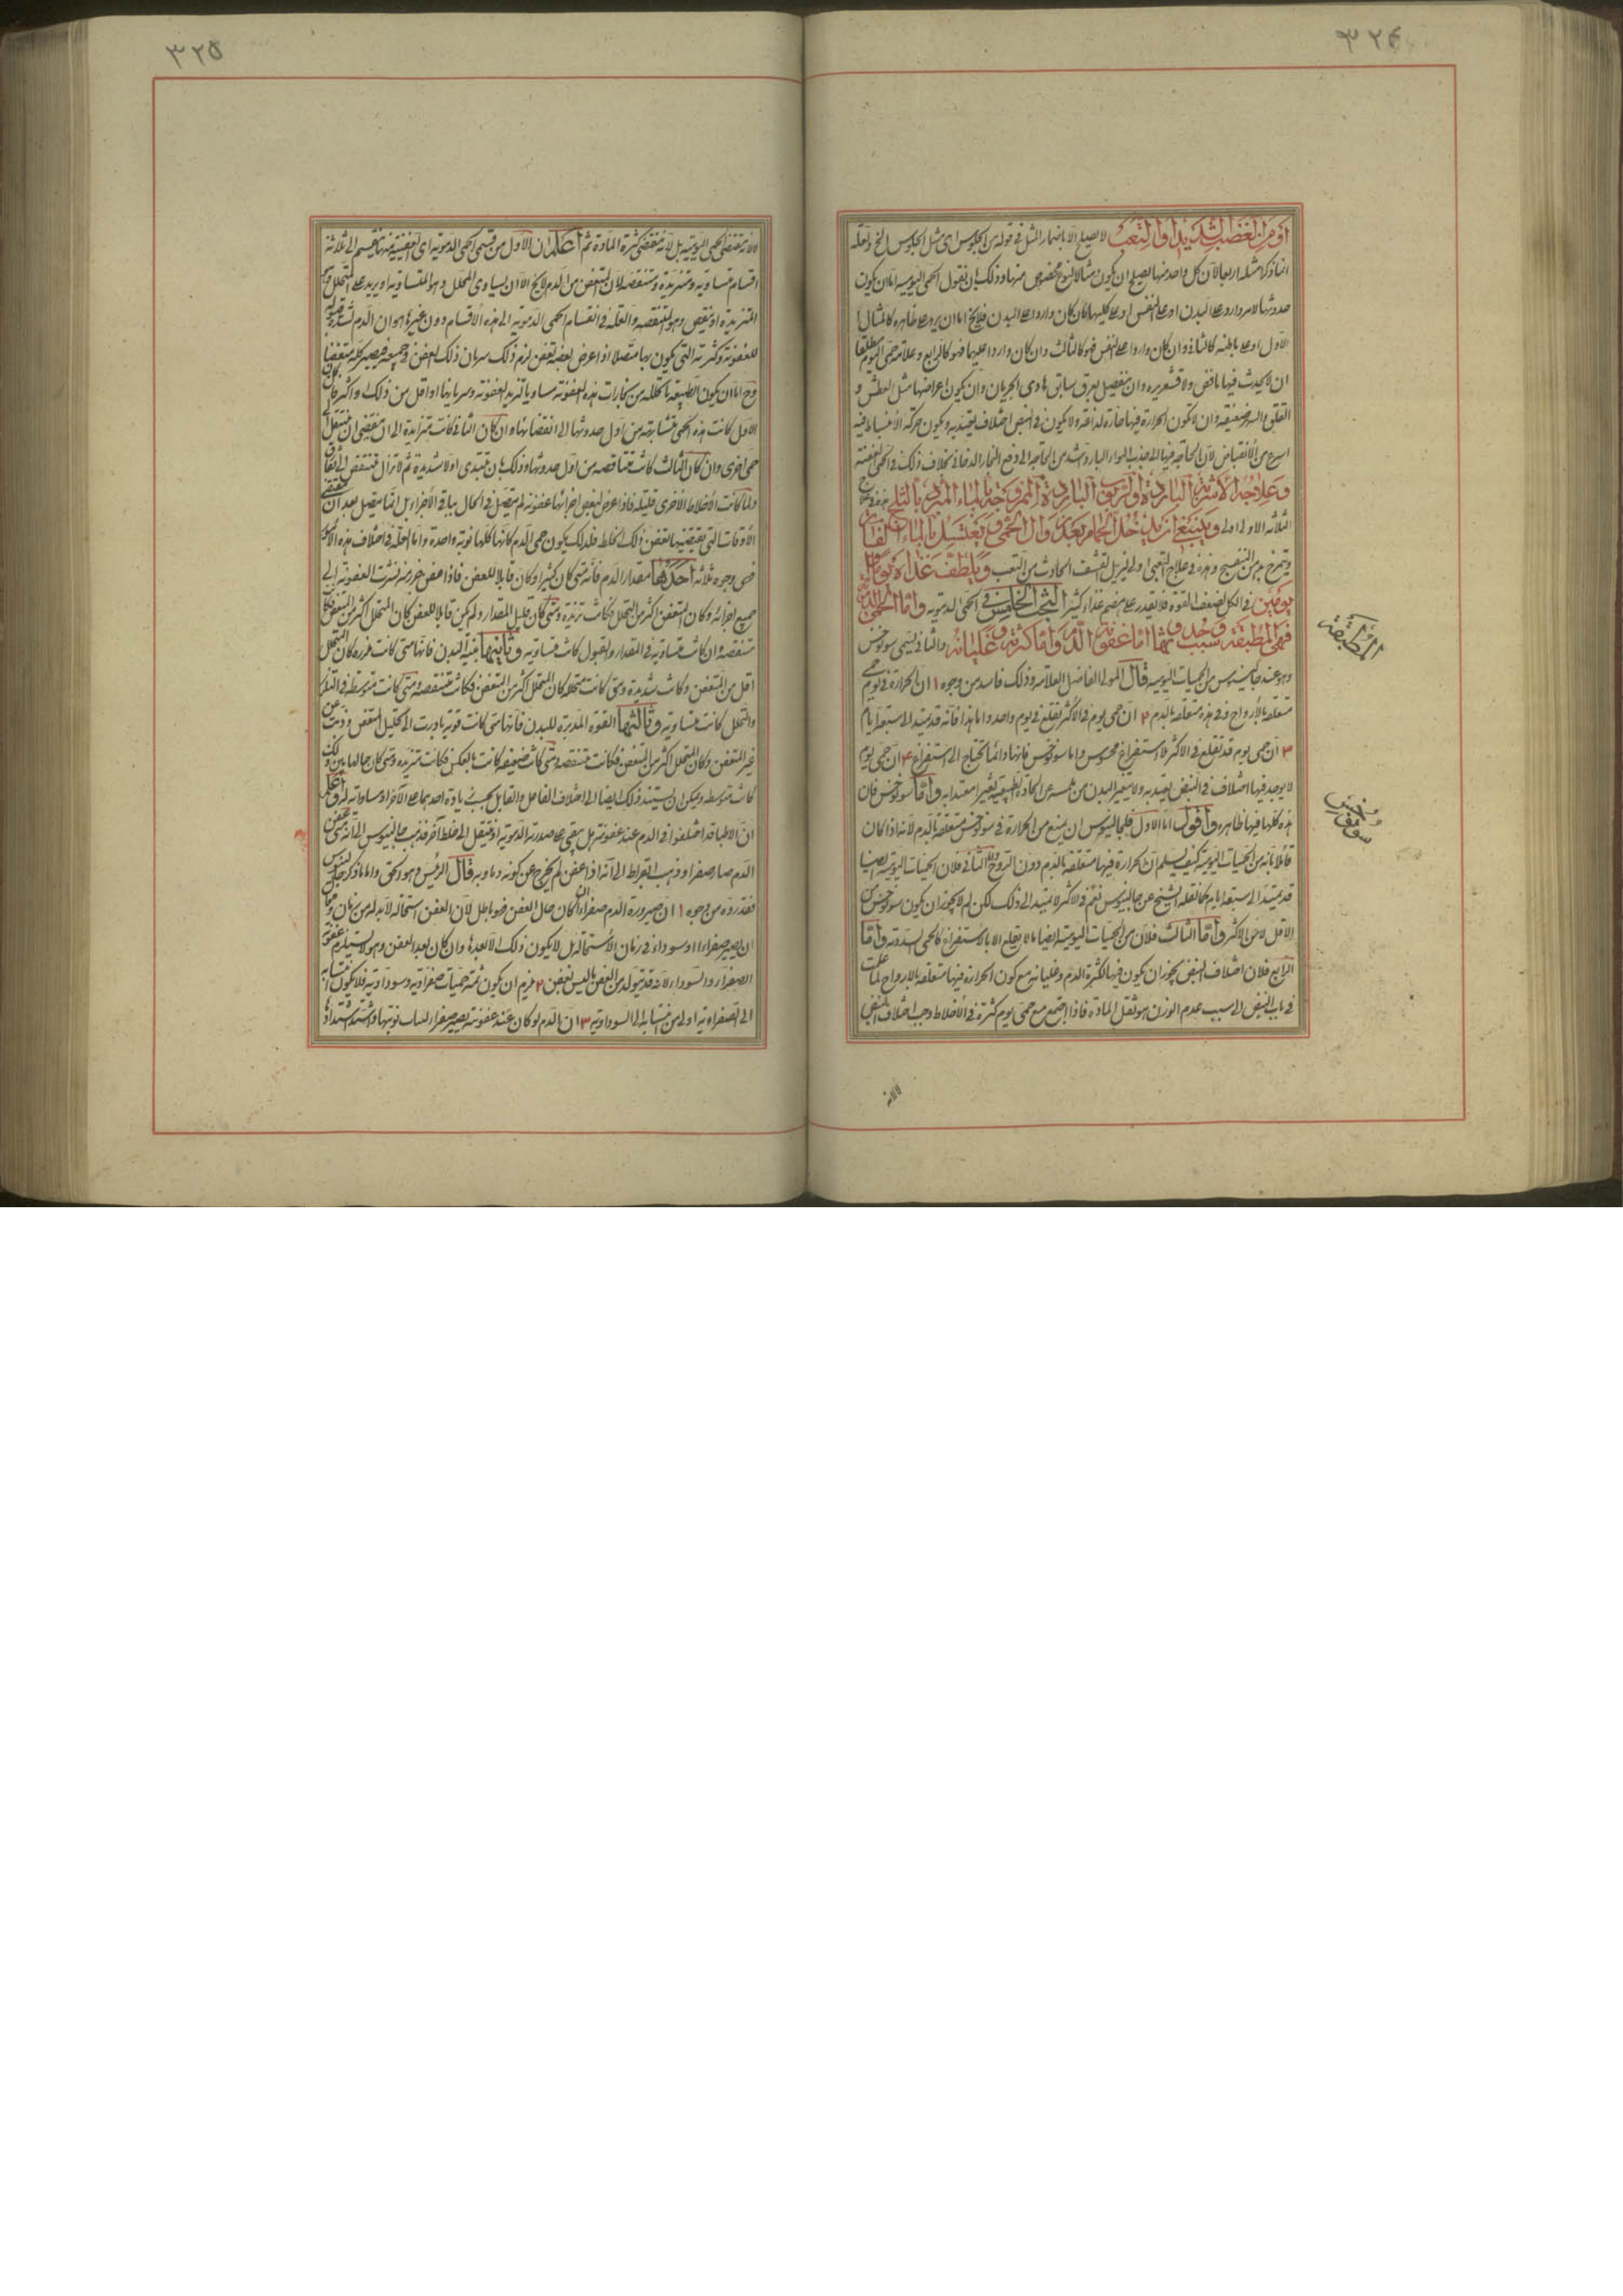 ٣٢٤
او من الغضب الشديد او التعب لا يصلح الا باضمار المثل في قوله من الجلوس اى مثل الجلوس الخ ولعله
انما ذكر امثلة اربعة لان كل واحد منها يصلح ان يكون مثالا لنوع مخصوص منها وذلك بان نقول الحمى اليومية اما ان يكون
حدوثها لامر وارد على البدن او على النفس او على كليهما فان كان واردا على البدن فلا يخ اما ان يرد على ظاهره كالمثال
الاول او على باطنه كالثانى وان كان واردا على النفس فهو كالثالث وان كان واردا عليهما فهو كالرابع وعلامة حمى اليوم مطلقا
ان لا يحدث فيها نافض ولا قشعريرة وان تنفصل بعرق سابق هادى الجريان وان يكون اعراضها مثل العطش و
القلق والسهر ضعيفة وان لا يكون الحرارة فيها حادة لذاعة ولا يكون في النبض اختلاف يعتد به ويكون حركة الانبساط فيه
اسرع من الانقباض لان الحاجة فيها الى جذب الهواء البارد اشد من الحاجة الى دفع البخار الدخانى بخلاف ذلك في الحمى العفنة
وعلاجه الاشربة الباردة او الربوب الباردة الممزوجة بالماء المبرد بالثلج
الثلاثة الاول اولى وينبغى ان يدخل الحمام بعد زوال الحمى ويغتسل بالماء الفاتر
وتمرخ بدهن البنفسج وهذه في علاج التعبى اولى ليزيل القشف الحادث من التعب ويلطف غذاءه يوما او
يومين في الكل لضعف القوة فلا تقدر على هضم غذاء كثير البحث الخامس في الحمى الدموية واما الحمى الدموية
فهى المطبقة وحدوثها بسبب اما عفونة الدم واما كثرته وغليانه والثانى يسمى سونوخس
وهو عند جالينوس من الحميات اليومية قال المولى الفاضل العلامة وذلك فاسد من وجوه ١ ان الحرارة في حمى يوم
متعلقة بالارواح وفي هذه متعلقة بالدم ٢ ان حمى يوم في الاكثر تقلع في يوم واحد واما هذا فانه قد يمتد الى سبعة ايام
٣ ان حمى يوم قد تقلع في الاكثر بلا استفراغ محسوس واما سونوخس فانها دائما تحتاج الى استفراغ ٤ ان حمى يوم
لا يوجد فيها اختلاف في النبض يعتد به ولا يتغير البدن من لمسه عن الحالة الطبيعية تغيرا معتدا به واما سونوخس فان
هذه كلها فيها ظاهرة واقول اما الاول فلجالينوس ان يمنع من الحرارة في سونوخس متعلقة بالدم لانه اذا كان
قائلا بانه من الحميات اليومية كيف يسلم ان الحرارة فيها متعلقة بالدم دون الروح واما الثانى فلان الحميات اليومية ايضا
قد يمتد الى سبعة ايام كما نقله الشيخ عن جالينوس نعم في الاكثر لا تمتد الى ذلك لكن لم لا يجوز ان يكون سونوخس من
الاقل لا من الاكثر واما الثالث فلان من الحميات اليومية ايضا ما لا يقلع الا بالاستفراغ كالحمى السددية واما
الرابع فلان اختلاف النبض يجوز ان يكون فيها لكثرة الدم وغليانه مع كون الحرارة فيها متعلقة بالارواح لما علمت
في باب النبض الى سبب عدم الوزن هو ثقل المادة فاذا اجتمع مع حمى يوم كثرة في الاخلاط وجب اختلاف النبض
لا لانه
المطبقة
سونوخس
٣٢٥
لا لانه تقتضى الحمى اليومية بل لانه تقتضى كثرة المادة ثم اعلم ان الاول من قسمى الحمى الدموية اى العفنية منها تنقسم الى ثلاثة
اقسام متساوية ومتزيدة ومتنقصة لان المتعفن من الدم لا يخ الا ان يساوى المتحلل وهو المتساوية او يزيد على المتحلل وهو
المتزيدة او ينقص وهو المتنقصة والعلة في انقسام الحمى الدموية الى هذه الاقسام دون غيرها هو ان الدم لشدة قبوله
للعفونة وكثرته التى يكون بها متصلا اذا عرض لبعضه تعفن لزم ذلك سريان ذلك العفن في جميعه فيصير كله متعفنا
وح اما ان يكون الطبيعة ما تحلله من بخارات هذه العفونة مساويا لتزيد العفونة وسريانها او اقل من ذلك او اكثر فان كان
الاول كانت هذه الحمى متشابهة من اول حدوثها الى انقضائها وان كان الثانى كانت متزايدة الى ان تنقضى او تنتقل الى
حمى اخرى وان كان الثالث كانت متناقصة من اول حدوثها وذلك بان تبتدى اولا شديدة ثم لا تزال تنتقص الى
ولما كانت الاخلاط الاخرى قليلة فاذا عرض لبعض اجزائها عفونة لم يتصل في الحال بباقى الاجزاء بل انما يتصل بعد ان تنقضى
الاوقات التى يقتضيها تعفن ذلك الخلط فلذلك يكون حمى الدم كانها كلها نوبة واحدة واما العلة في اختلاف هذه الامور
فمن وجوه ثلاثة احدها مقدار الدم فانه متى كان كثيرا وكان قابلا للعفن فاذا عفن جزء منه نشرت العفونة الى
جميع اجزائه وكان المتعفن اكثر من المتحلل فكانت متزيدة ومتى كان قليل المقدار ولم يكن قابلا للعفن كان المتحلل اكثر من المتعفن فكانت
متنقصة وان كانت متساوية في المقدار والقبول كانت متساوية وثانيها بنية البدن فانها متى كانت غزيرة كان المتحلل
اقل من المتعفن وكانت شديدة ومتى كانت متخلخلة كان المتحلل اكثر من المتعفن فكانت متنقصة ومتى كانت متوسطة في التلزز
والتخلخل كانت متساوية وثالثها القوة المدبرة للبدن فانها متى كانت قوية بادرت الى تحليل المتعفن وذبت عن
غير المتعفن وكان المتحلل اكثر من المتعفن فكانت متنقصة ومتى كانت ضعيفة كانت بالعكس فكانت متزيدة ومتى كان حالها بين ذلك
كانت متوسطة ويمكن ان يستند ذلك ايضا الى اختلاف الفاعل والقابل بحسب زيادة احدهما على الاخر او مساواته له واعلم
ان الاطباء قد اختلفوا في الدم عند عفونته هل يبقى على صدرته الدموية او ينتقل الى خلط آخر فذهب جالينوس الى انه متى عفن
الدم صار صفراء وذهب ابقراط الى انه اذا عفن لم يخرج عن كونه دما وبه قال الرئيس وهو الحق واما ما ذكره جالينوس
فقد ردوه من وجوه ١ ان صيرورة الدم صفراء ان كان حال العفن فهو باطل لان العفن استحالة لا بد له من زمان
ان يصير صفراء او سوداء في زمان الاستحالة بل لا يكون ذلك الا بعدها وان كان بعد العفن وهو لا يستلزم عفونة
الصفراء والسوداء لانه قد يتولد من العفن ما ليس بعفن ٢ يلزم ان يكون ثمة حميات صفراوية وسوداوية فلا يكون انتسابه
الى الصفراوية اولى من انتسابه الى السوداوية ٣ ان الدم لو كان عند عفونته يصير صفراء لناب نوبتها واشتد اشتدادها